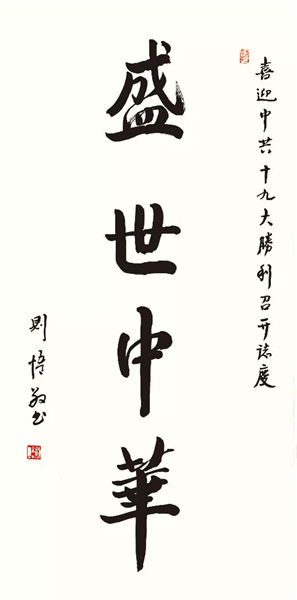 喜迎中共十九大勝利召开誌慶
盛世中華
則悟敬书